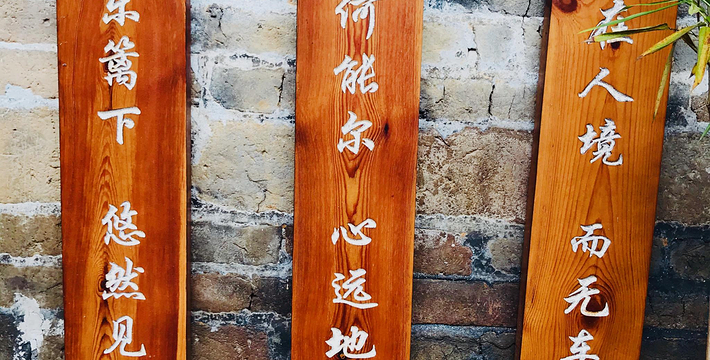 在人境 而无车
何能尔 心远地
东篱下 悠然见